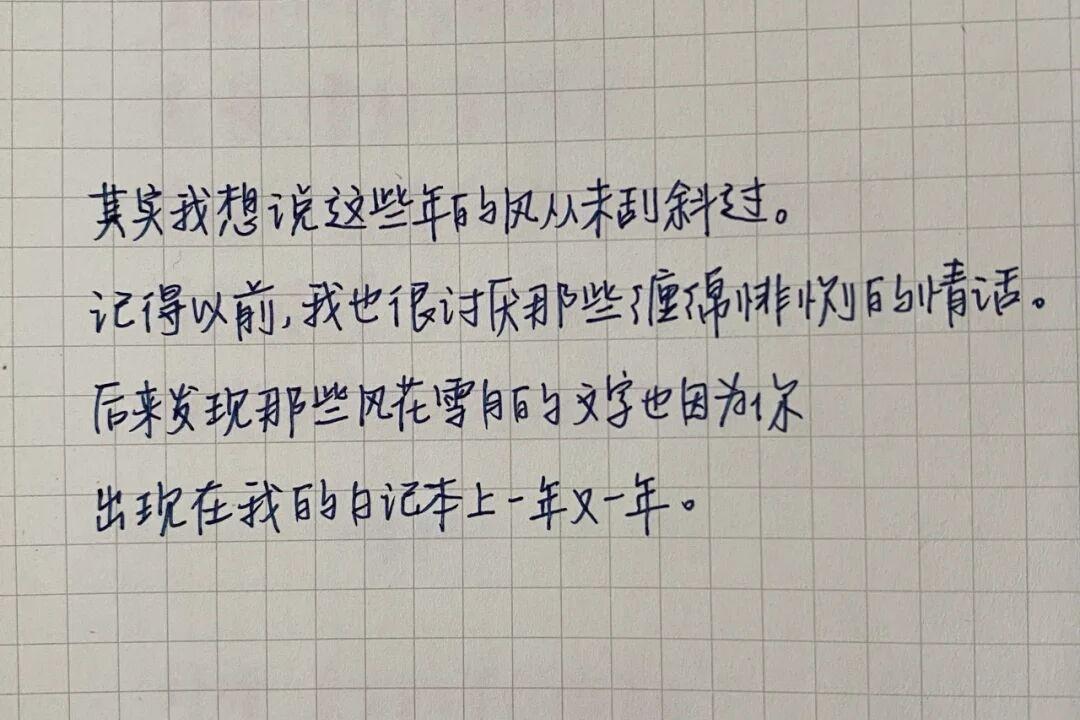 其实我想说这些年的风从未刮斜过。
记得以前,我也很讨厌那些缠绵悱恻的情话。
后来发现那些风花雪月的文字也因为你
出现在我的日记本上一年又一年。